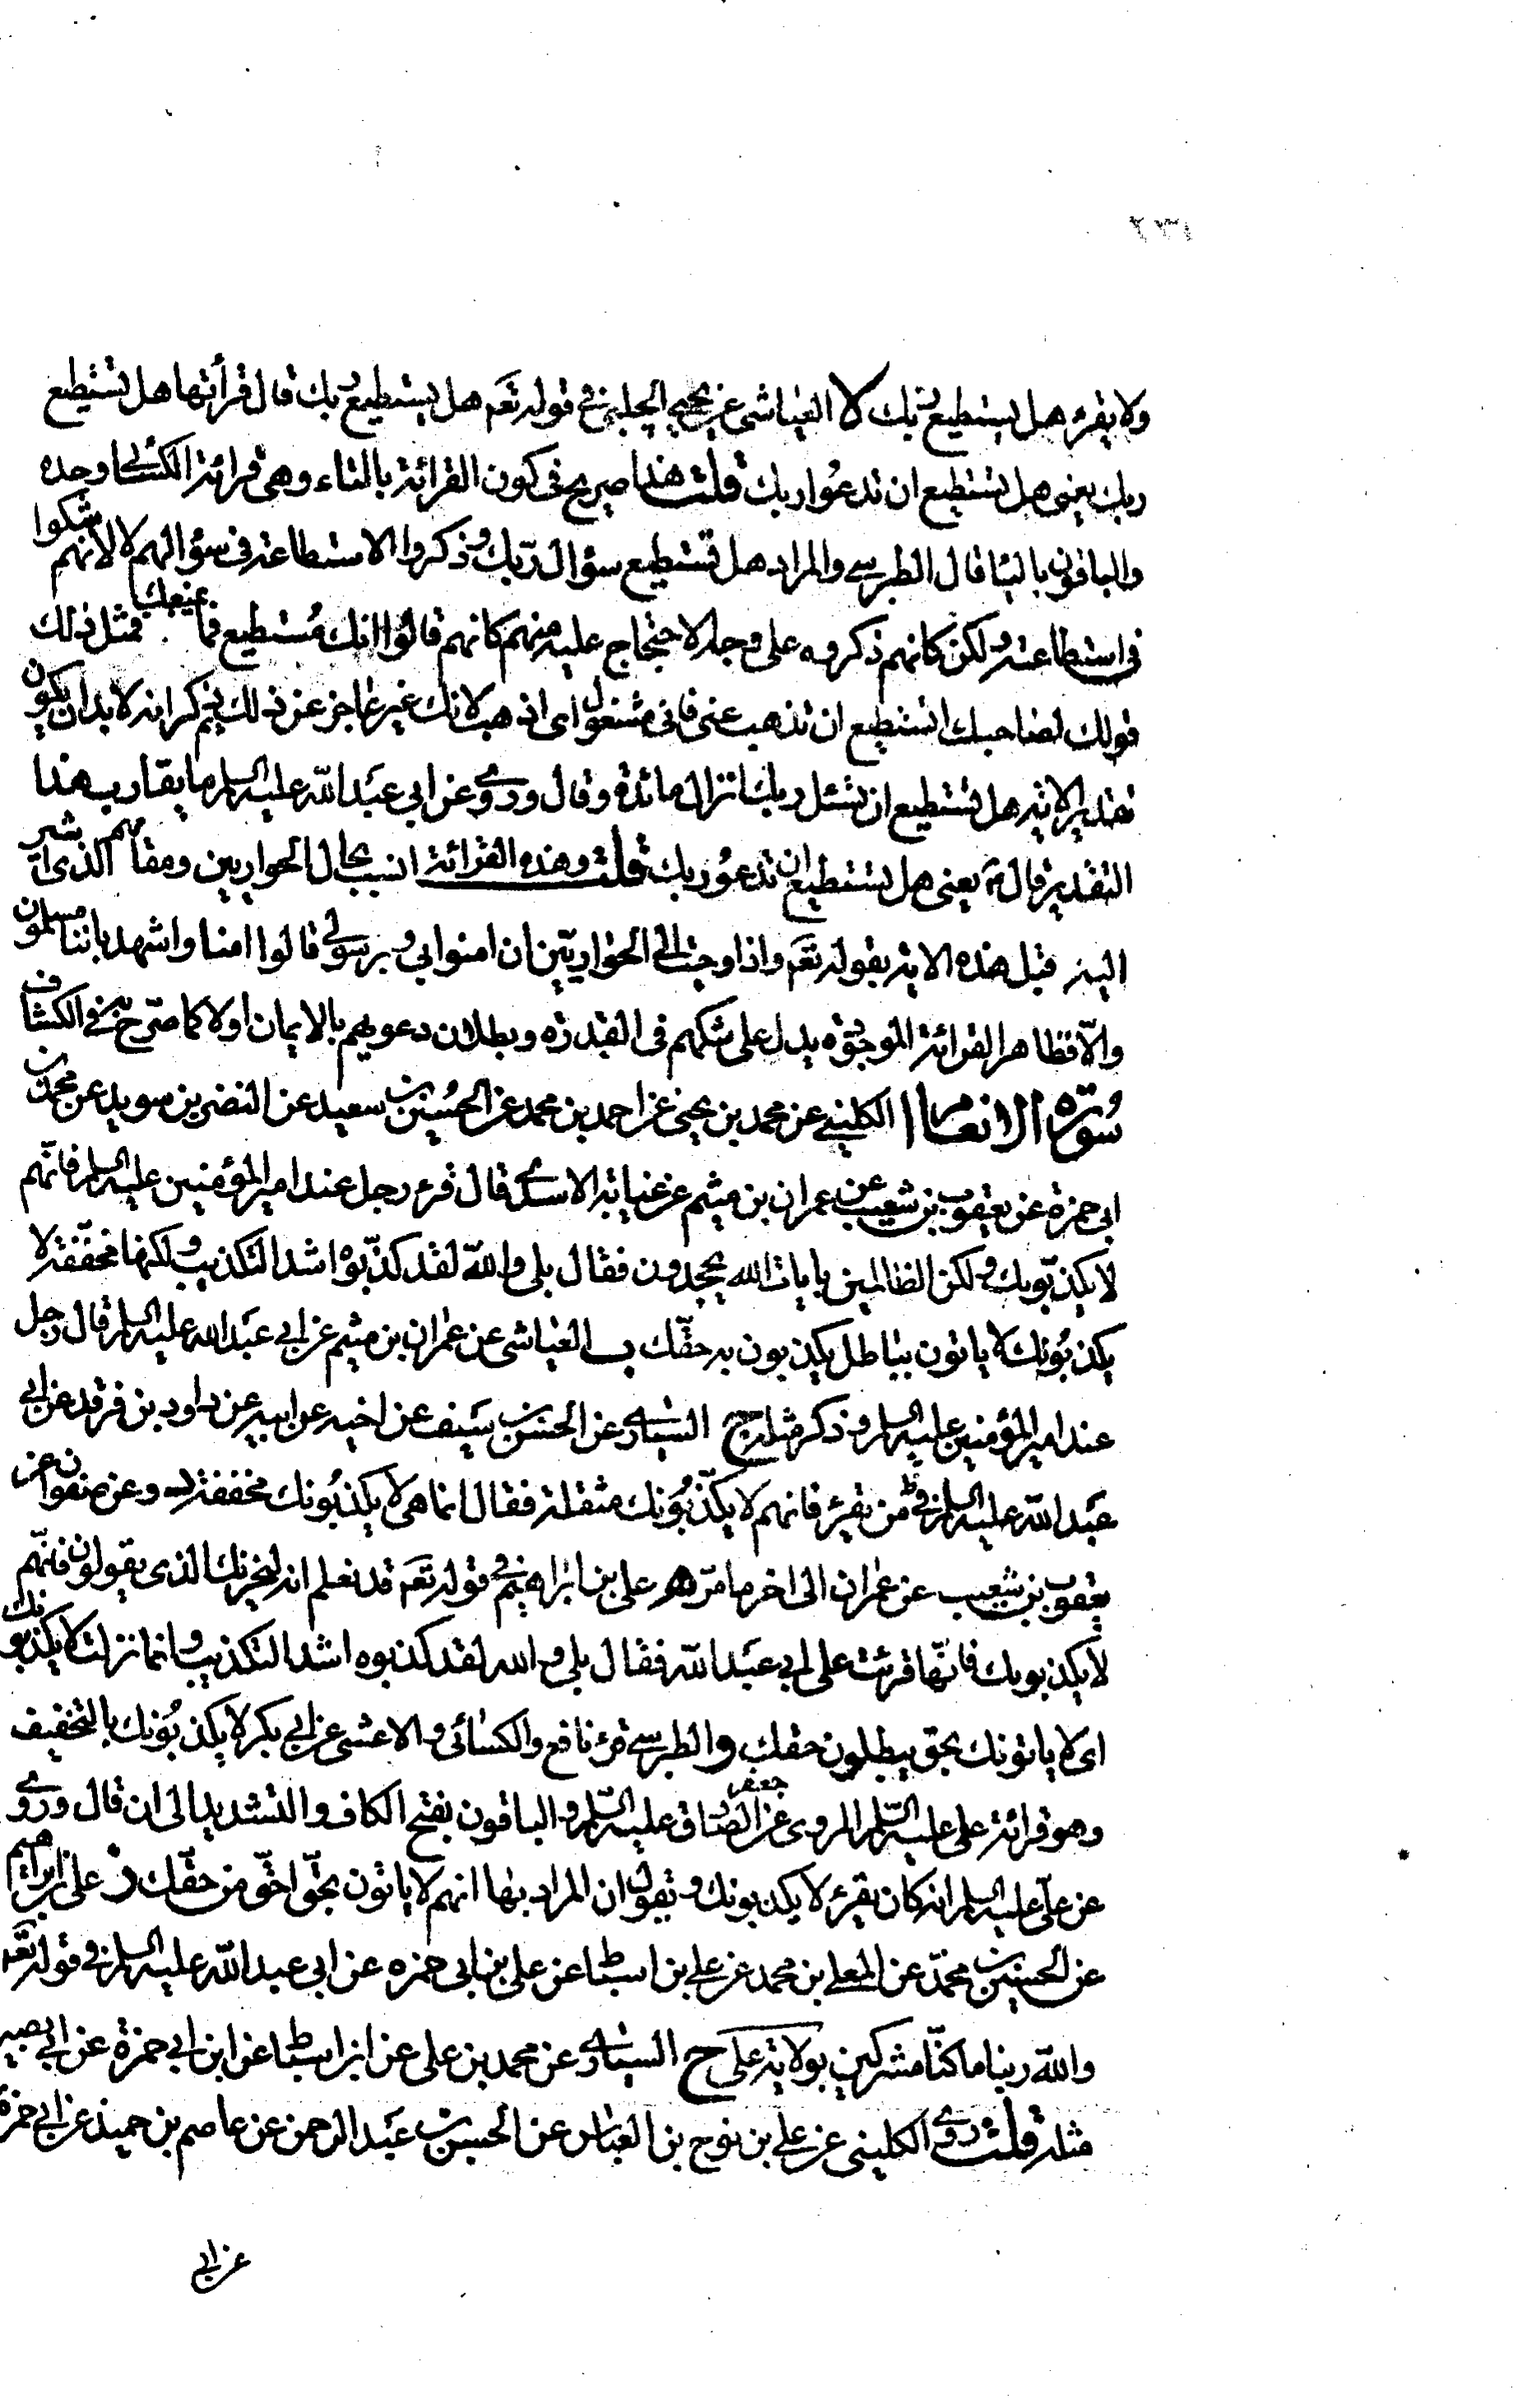 ولا يقرء هل يستطيع ربك لا العياشى عن يحيى الحلبى فى قوله تعم هل يستطيع ربك قال قرأتها هل تستطيع
ربك يعنى هل تستطيع ان تدعوا ربك قلت هذا صريح فى كون القرائة بالتاء وهى قرائة الكسائى وحده
والباقون بالياء قال الطبرسى والمراد هل تستطيع سؤال ربك وذكروا الاستطاعة فى سؤالهم لا لانهم شكوا
فى استطاعته ولكن كانهم ذكروه على وجه الاحتجاج عليه منهم كانهم قالوا انك مستطيع فما يمنعك فمثل ذلك
قولك لصاحبك اتستطيع ان تذهب عنى فانى مشغول اى اذهب لانك غير عاجز عن ذلك ثم ذكر انه لا بد ان يكون
تقدير الاية هل تستطيع ان تسئل ربك انزال مائدة وقال وروى عن ابى عبد الله عليه السلم ما يقارب هذا
التقدير قال ع يعنى هل تستطيع ان تدعو ربك قلت وهذه القرائة انسب بحال الحواريين ومقامهم الذى اشير
اليه قبل هذه الاية بقوله تعم واذ اوحيت الى الحواريين ان امنوا بى وبرسولى قالوا امنا واشهد باننا مسلمون
والا فظاهر القرائة الموجودة يدل على شكهم فى القدرة وبطلان دعويهم بالايمان اولا كما صرح به فى الكشاف
سورة الانعام ا الكلينى عن محمد بن يحيى عن احمد بن محمد عن الحسين بن سعيد عن النضر بن سويد عن محمد بن
ابى حمزة عن يعقوب بن شعيب عن عمران بن ميثم عن عباية الاسدى قال قرء رجل عند امير المؤمنين عليه السلم فانهم
لا يكذبونك ولكن الظالمين بايات الله يجحدون فقال بلى والله لقد كذبوه اشد التكذيب ولكنها مخففة لا
يكذبونك لا ياتون بباطل يكذبون به حقك ب العياشى عن عمران بن ميثم عن ابى عبد الله عليه السلم قال قال رجل
عند امير المؤمنين عليه السلم وذكر مثله ج السيارى عن الحسن بن سيف عن اخيه عن ابيه عن داود بن فرقد عن ابى
عبد الله عليه السلم فى من يقرء فانهم لا يكذبونك مثقلة فقال انما هى لا يكذبونك مخففة د وعن صفوان عن
يعقوب بن شعيب عن عمران الى اخر ما مر ه على بن ابراهيم فى قوله تعم قد نعلم انه ليحزنك الذى يقولون فانهم
لا يكذبونك فانها قرئت على ابى عبد الله فقال بلى والله لقد كذبوه اشد التكذيب وانما نزلت لا يكذبونك
اى لا ياتونك بحق يبطلون حقك و الطبرسى قرء نافع والكسائى والاعشى عن ابى بكر لا يكذبونك بالتخفيف
وهو قرائة على عليه السلم المروى عن جعفر الصادق عليه السلم والباقون بفتح الكاف والتشديد الى ان قال وروى
عن على عليه السلم انه كان يقرء لا يكذبونك ويقول ان المراد بها انهم لا ياتون بحق احق من حقك ز على بن ابراهيم
عن الحسين بن محمد عن المعلى بن محمد عن على بن اسباط عن على بن ابى حمزه عن ابى عبد الله عليه السلم فى قوله تعم
والله ربنا ما كنا مشركين بولاية على ح السيارى عن محمد بن على عن ابن اسباط عن ابن ابى حمزة عن ابى بصير
مثله قلت روى الكلينى عن على بن نوح بن العباس عن الحسن بن عبد الرحمن عن عاصم بن حميد عن ابى حمزة
عن ابى